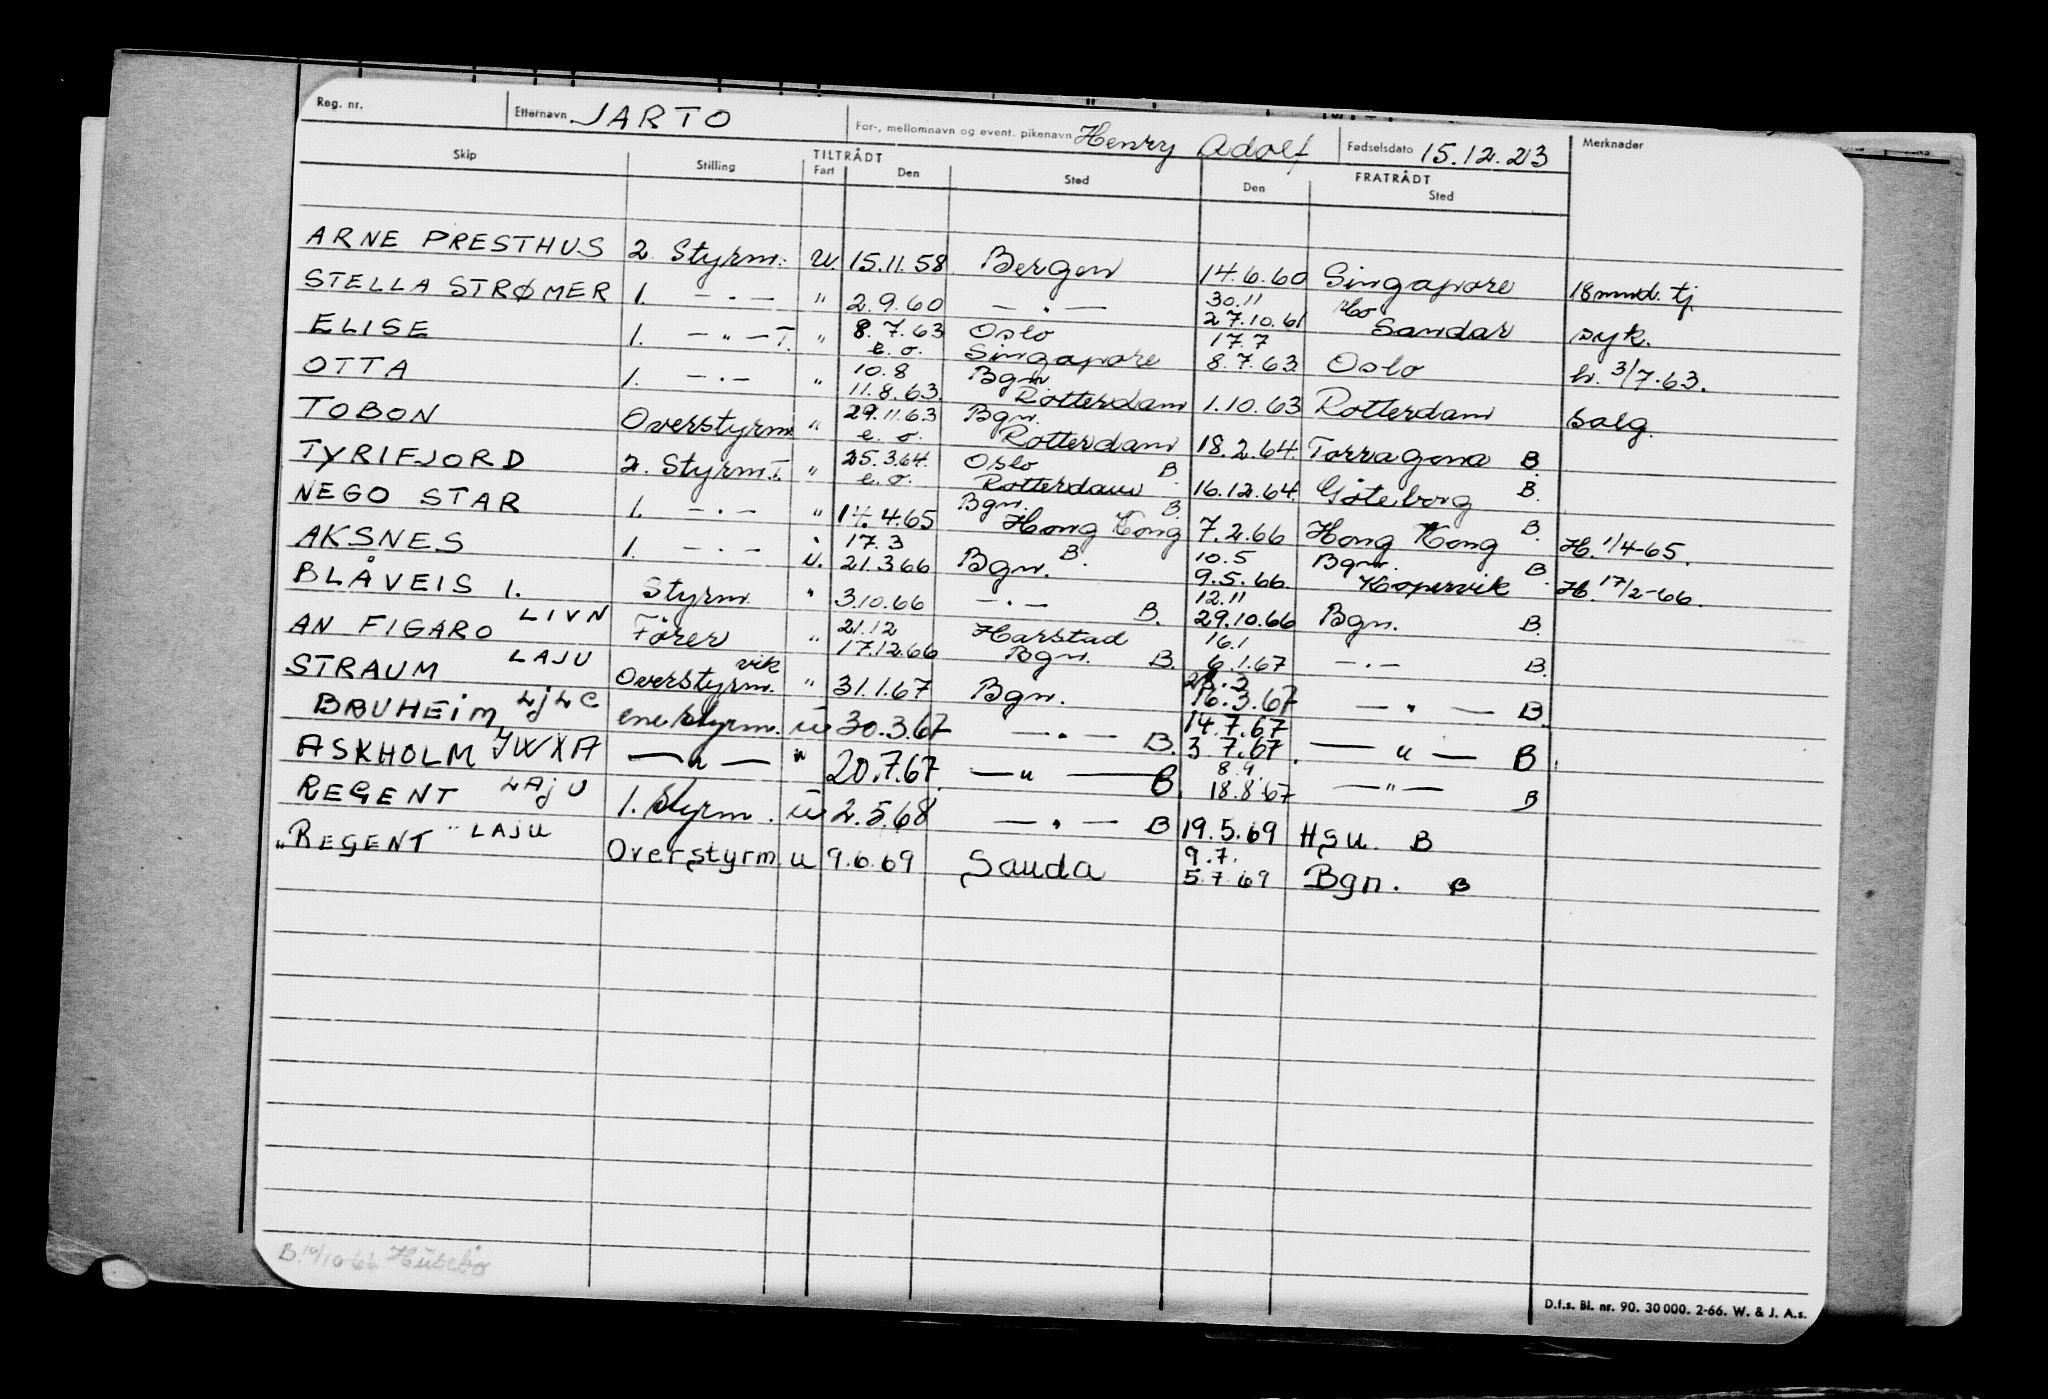 Reg. nr. Etternavn JARTO For-, mellomnavn og event. pikenavn Henry Adolf Fødselsdato 15.12.23 Merknader
Skip Stilling TILTRÅDT Fart Den Sted FRATRÅDT Den Sted
ARNE PRESTHUS 2. Styrm. U. 15.11.58 Bergen 14.6.60 Singapore 18 mnd. tj.
STELLA STRØMER 1. — . — " 2.9.60 — . — 30.11 27.10.61 Sandar syk.
ELISE 1. — " — T. " 8.7.63 e.o. Oslo Singapore 17.7 8.7.63 Oslo h. 3/7.63.
OTTA 1. — . — " 10.8 11.8.63. Bgn. Rotterdam 1.10.63 Rotterdam salg.
TOBON Overstyrm. " 29.11.63 e.o. Bgn. Rotterdam 18.2.64. Tarragona B.
TYRIFJORD 2. Styrm. T. " 25.3.64. e.o. Oslo Rotterdam B. 16.12.64. Göteborg B.
NEGO STAR 1. — . — " 14.4.65 Bgn. Hong Kong B. 7.2.66 Hong Kong B. H. 1/4-65.
AKSNES 1. — . — U. 17.3 21.3.66 Bgn. B. 10.5 9.5.66. Bgn. Kopervik B. H. 17/2-66.
BLÅVEIS 1. Styrm. " 3.10.66 — . — B. 12.11 29.10.66 Bgn. B.
AN FIGARO LIVN Fører " 21.12 17.12.66 Harstad Bgn. B. 16.1 6.1.67 — . — B.
STRAUM LAJU Overstyrm. vik " 31.1.67 Bgn. 16.3.67 — " — B.
BRUHEIM LJLC enestyrm. U 30.3.67 — . — B. 14.7.67 3 7.67. — " — B.
ASKHOLM JWXA — " — " 20.7.67. — " — B. 8.9. 18.8.67 — " — B
REGENT LAJU 1. Styrm. U 2.5.68 — . — B 19.5.69 HSU. B
"REGENT" LAJU Overstyrm U 9.6.69 Sauda 9.7. 5.7.69 Bgn. B
B. 14/10-66 Husebø
D.f.s. Bl. nr. 90. 30 000. 2-66. W. & J. A.s.